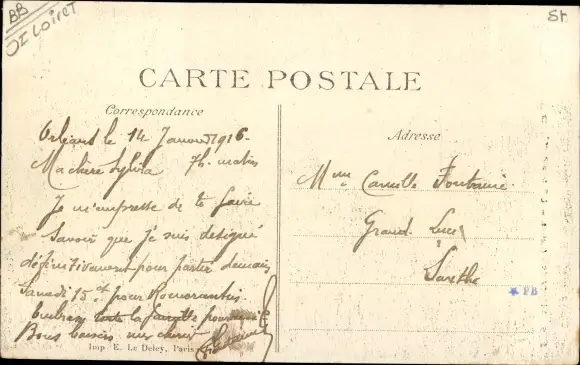 BB
St
Loiret
CARTE POSTALE
Correspondance
Adresse
Orléans le 14 Janvier 1916.
Ma chère Sylvia 7h. matin
Je m'empresse de te faire
savoir que je suis désigné
définitivement pour partir demain
Samedi 15 ct pour Romorantin
toute la famille pour moi
Bons baisers mon chéri
Mme Camille
Grand Lucé
Sarthe
PB
Imp. E. Le Deley, Paris